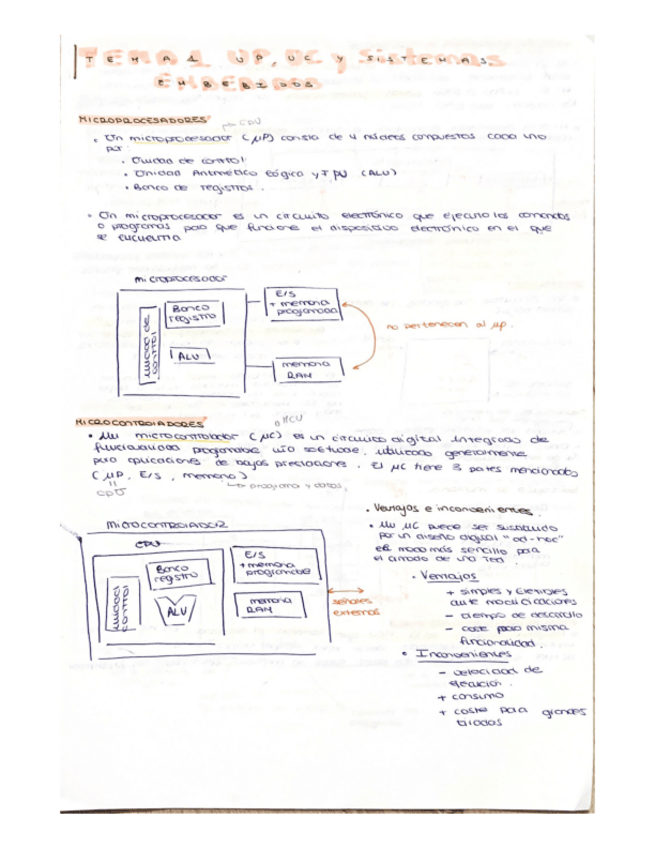 TEMA 1 UP, UC y SISTEMAS
EMBEBIDOS
MICROPROCESADORES
CPU
• Un microprocesador (μP) consta de 4 núcleos compuestos cada uno
por:
• Unidad de control
• Unidad Aritmético Lógica y FPU (ALU)
• Banco de registros.
• Un microprocesador es un circuito electrónico que ejecuta los comandos
o programas para que funcione el dispositivo electrónico en el que
se encuentra
microprocesador
unidad de
control
Banco
registro
ALU
E/S
+ memoria
programada
memoria
RAM
no pertenecen al μp.
MICROCONTROLADORES
o MCU
• Un microcontrolador (μC) es un circuito digital integrado de
funcionalidad programable vía software, utilizado generalmente
para aplicaciones de bajas prestaciones. El μC tiene 3 partes mencionadas
(μP, E/S, memoria)
CPU
programa y datos.
MICROCONTROLADOR
CPU
unidad
control
Banco
registro
ALU
E/S
+ memoria
programable
memoria
RAM
señales
externas
• Ventajas e inconvenientes.
• Un μC puede ser sustituido
por un diseño digital "ad-hoc"
el modo más sencillo para
• Ventajas
+ simples y flexibles
ante modificaciones
- tiempo de desarrollo
- coste para misma
funcionalidad.
• Inconvenientes
- velocidad de
ejecución.
+ consumo
+ coste para grandes
tiradas